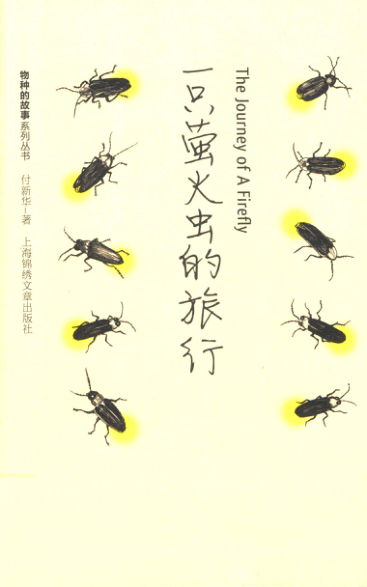 The Journey of A Firefly
一只萤火虫的旅行
物种的故事系列丛书
付新华-著 上海锦绣文章出版社